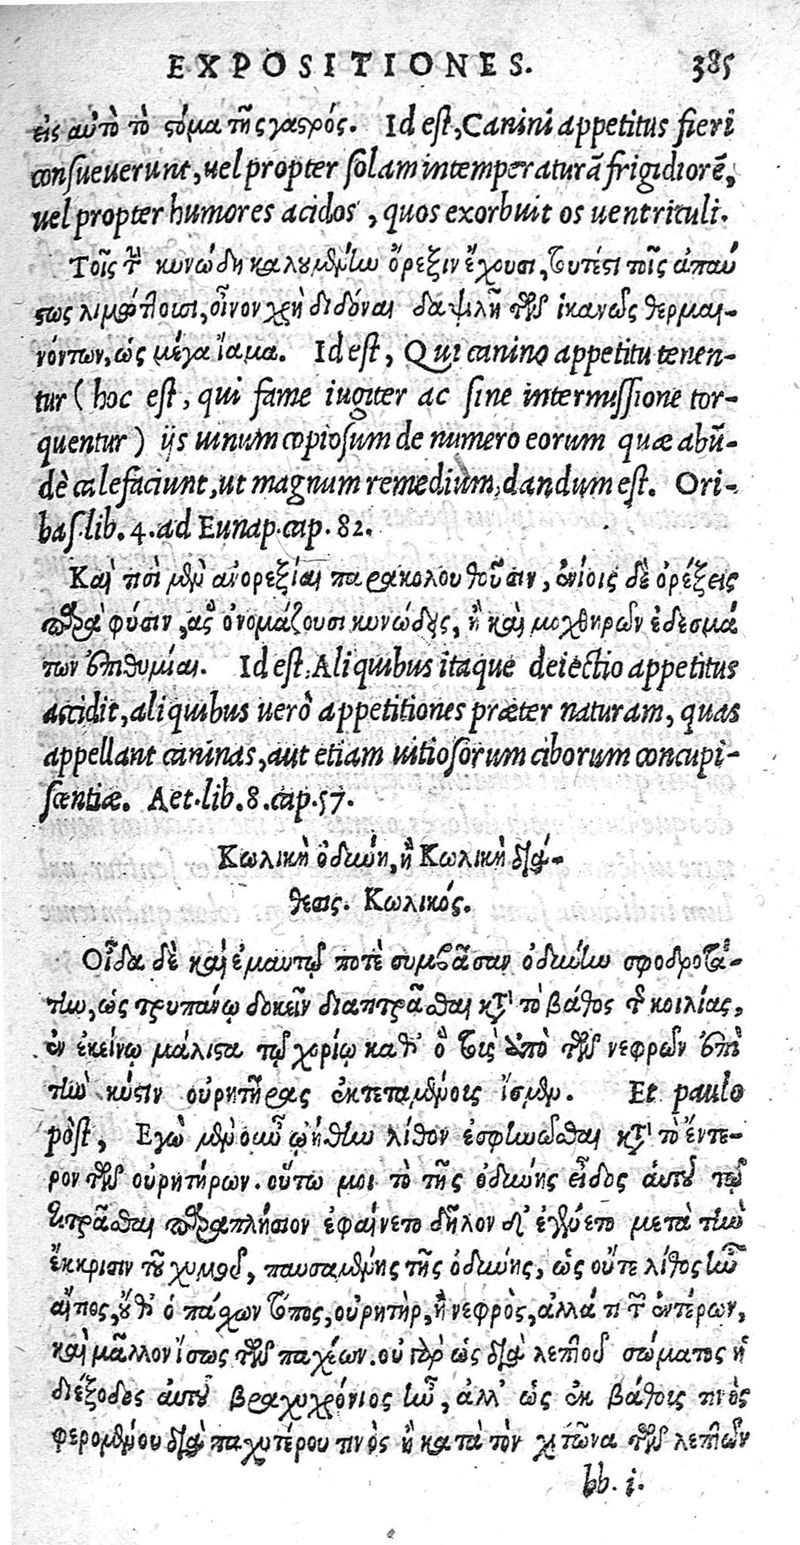 EXPOSITIONES. 385
εἰς αὐτὸ τὸ στόμα τῆς γαστρός. Id est, Canini appetitus fieri
consueuerunt, uel propter solam intemperaturā frigidiorē,
uel propter humores acidos, quos exorbuit os uentriculi.
Τοῖς τὴν κυνώδη καλουμένην ὄρεξιν ἔχουσι, τουτέστι τοῖς ἀπαύ
στως λιμώττουσι, οἶνον χρὴ διδόναι δαψιλῆ τῶν ἱκανῶς θερμαι-
νόντων, ὡς μέγα ἴαμα. Id est, Qui canino appetitu tenen-
tur (hoc est, qui fame iugiter ac sine intermissione tor-
quentur) ijs uinum copiosum de numero eorum quæ abū-
dè calefaciunt, ut magnum remedium, dandum est. Ori-
bas. lib. 4. ad Eunap. cap. 82.
Καὶ τισὶ μὲν ἀνορεξίαι παρακολουθοῦσιν, ἐνίοις δὲ ὀρέξεις
παρὰ φύσιν, ἃς ὀνομάζουσι κυνώδεις, ἢ καὶ μοχθηρῶν ἐδεσμά
των ἐπιθυμίαι. Id est, Aliquibus itaque deiectio appetitus
accidit, aliquibus uerò appetitiones præter naturam, quas
appellant caninas, aut etiam uitiosorum ciborum concupi-
scentiæ. Aet. lib. 8. cap. 57.
Κωλικὴ ὀδύνη, ἢ Κωλικὴ διά-
θεσις. Κωλικός.
Οἶδα δὲ καὶ ἐμαυτῷ ποτὲ συμβᾶσαν ὀδύνην σφοδροτά-
την, ὡς τρυπάνῳ δοκεῖν διατιτρᾶσθαι κατὰ τὸ βάθος τῆς κοιλίας,
ἐν ἐκείνῳ μάλιστα τῷ χορίῳ καθ' ὃ τοὺς ἀπὸ τῶν νεφρῶν ἐπὶ
τὴν κύστιν οὐρητῆρας ἐκτεταμένους ἴσμεν. Et paulo
pòst, Ἐγὼ μὲν οὖν ᾠήθην λίθον ἐσφηνῶσθαι κατὰ τὸ ἕτε-
ρον τῶν οὐρητήρων. οὕτω μοι τὸ τῆς ὀδύνης εἶδος αὐτοῦ τοῦ
τιτρᾶσθαι παραπλήσιον ἐφαίνετο δῆλον δ' ἐγένετο μετὰ τὴν
ἔκκρισιν τοῦ χυμοῦ, παυσαμένης τῆς ὀδύνης, ὡς οὔτε λίθος ἦν
αἴτιος, οὔθ' ὁ πάσχων τόπος, οὐρητὴρ, ἢ νεφρὸς, ἀλλά τι τῶν ἐντέρων,
καὶ μᾶλλον ἴσως τῶν παχέων. οὐ γὰρ ὡς διὰ λεπτοῦ σώματος ἡ
διέξοδος αὐτοῦ βραχυχρόνιος ἦν, ἀλλ' ὡς ἐκ βάθους τινὸς
φερομένου διὰ παχυτέρου τινὸς ἢ κατὰ τὸν χιτῶνα τῶν λεπτῶν
bb. i.